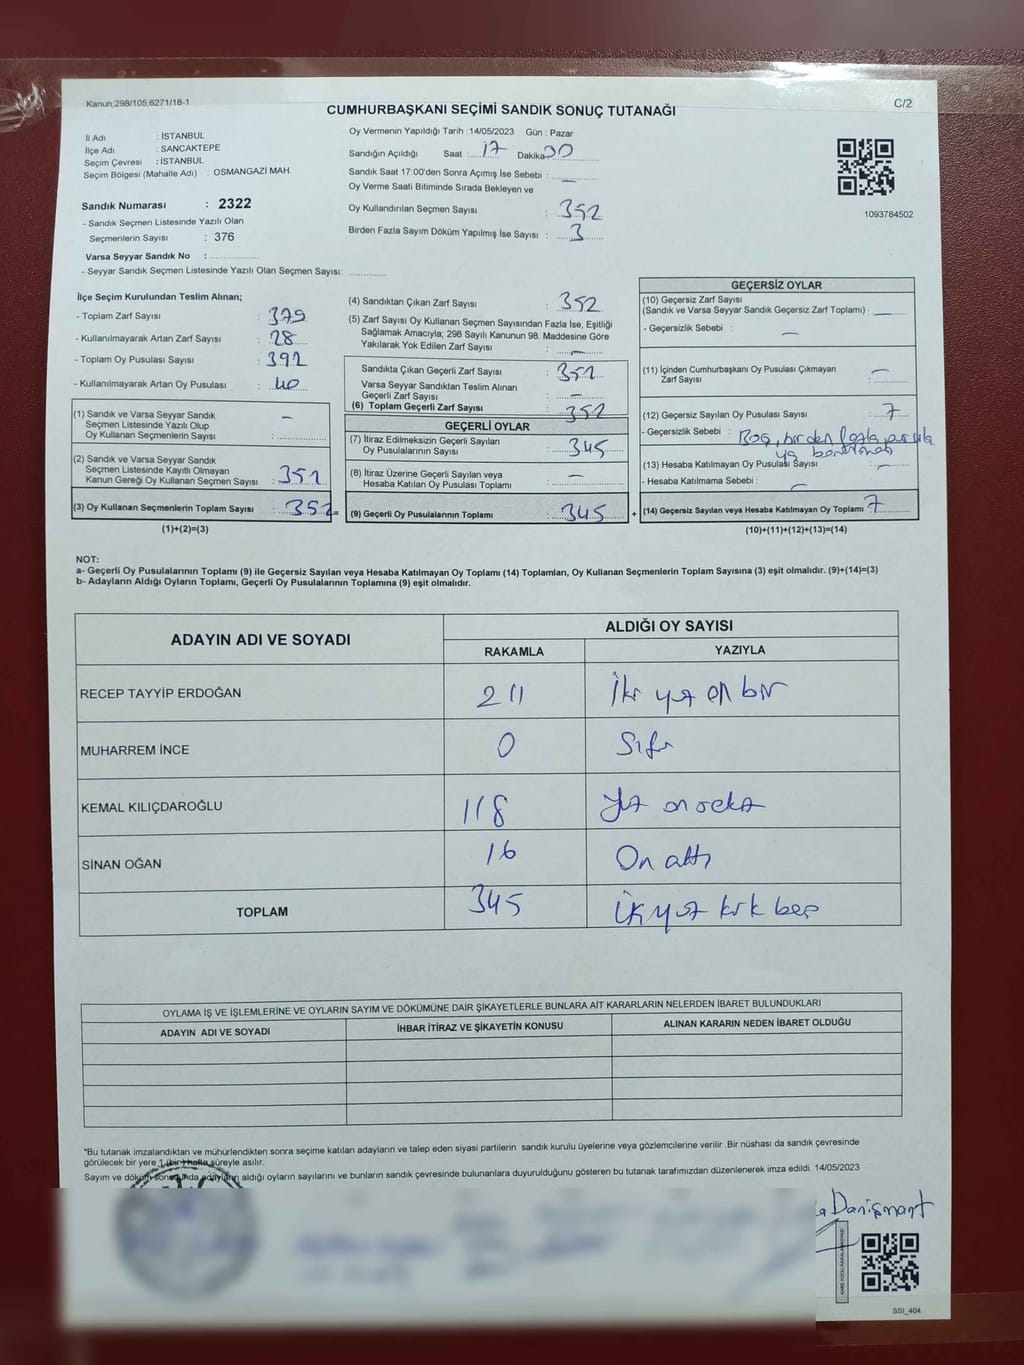 Kanun:298/105,6271/18-1
C/2
CUMHURBAŞKANI SEÇİMİ SANDIK SONUÇ TUTANAĞI
İl Adı : İSTANBUL
İlçe Adı : SANCAKTEPE
Seçim Çevresi : İSTANBUL
Seçim Bölgesi (Mahalle Adı) : OSMANGAZİ MAH.
Sandık Numarası : 2322
- Sandık Seçmen Listesinde Yazılı Olan
Seçmenlerin Sayısı : 376
Varsa Seyyar Sandık No :
- Seyyar Sandık Seçmen Listesinde Yazılı Olan Seçmen Sayısı:
Oy Vermenin Yapıldığı Tarih : 14/05/2023 Gün : Pazar
Sandığın Açıldığı Saat : 17 Dakika 00
Sandık Saat 17:00'den Sonra Açımış İse Sebebi : —
Oy Verme Saati Bitiminde Sırada Bekleyen ve
Oy Kullandırılan Seçmen Sayısı : 352
Birden Fazla Sayım Döküm Yapılmış İse Sayısı : 3
1093784502
İlçe Seçim Kurulundan Teslim Alınan;
- Toplam Zarf Sayısı : 379
- Kullanılmayarak Artan Zarf Sayısı : 28
- Toplam Oy Pusulası Sayısı : 392
- Kullanılmayarak Artan Oy Pusulası : 40
(1) Sandık ve Varsa Seyyar Sandık
Seçmen Listesinde Yazılı Olup
Oy Kullanan Seçmenlerin Sayısı : —
(2) Sandık ve Varsa Seyyar Sandık
Seçmen Listesinde Kayıtlı Olmayan
Kanun Gereği Oy Kullanan Seçmen Sayısı : 352
(3) Oy Kullanan Seçmenlerin Toplam Sayısı : 352 =
(1)+(2)=(3)
(4) Sandıktan Çıkan Zarf Sayısı : 352
(5) Zarf Sayısı Oy Kullanan Seçmen Sayısından Fazla İse, Eşitliği
Sağlamak Amacıyla; 298 Sayılı Kanunun 98. Maddesine Göre
Yakılarak Yok Edilen Zarf Sayısı : —
Sandıkta Çıkan Geçerli Zarf Sayısı : 352
Varsa Seyyar Sandıktan Teslim Alınan
Geçerli Zarf Sayısı : —
(6) Toplam Geçerli Zarf Sayısı : 352
GEÇERLİ OYLAR
(7) İtiraz Edilmeksizin Geçerli Sayılan
Oy Pusulasının Sayısı : 345
(8) İtiraz Üzerine Geçerli Sayılan veya
Hesaba Katılan Oy Pusulası Toplamı : —
(9) Geçerli Oy Pusulalarının Toplamı : 345 +
GEÇERSİZ OYLAR
(10) Geçersiz Zarf Sayısı
(Sandık ve Varsa Seyyar Sandık Geçersiz Zarf Toplamı) : —
- Geçersizlik Sebebi : —
(11) İçinden Cumhurbaşkanı Oy Pusulası Çıkmayan
Zarf Sayısı : —
(12) Geçersiz Sayılan Oy Pusulası Sayısı : 7
- Geçersizlik Sebebi : Boş, birden fazla pusula
ya
(13) Hesaba Katılmayan Oy Pusulası Sayısı : —
- Hesaba Katılmama Sebebi : —
(14) Geçersiz Sayılan veya Hesaba Katılmayan Oy Toplamı : 7
(10)+(11)+(12)+(13)=(14)
NOT:
a- Geçerli Oy Pusulalarının Toplamı (9) ile Geçersiz Sayılan veya Hesaba Katılmayan Oy Toplamı (14) Toplamları, Oy Kullanan Seçmenlerin Toplam Sayısına (3) eşit olmalıdır. (9)+(14)=(3)
b- Adayların Aldığı Oyların Toplamı, Geçerli Oy Pusulalarının Toplamına (9) eşit olmalıdır.
ADAYIN ADI VE SOYADI
ALDIĞI OY SAYISI
RAKAMLA YAZIYLA
RECEP TAYYİP ERDOĞAN 211 İki yüz on bir
MUHARREM İNCE 0 Sıfır
KEMAL KILIÇDAROĞLU 118 Yüz on sekiz
SİNAN OĞAN 16 On altı
TOPLAM 345 İkiyüz kırk beş
OYLAMA İŞ VE İŞLEMLERİNE VE OYLARIN SAYIM VE DÖKÜMÜNE DAİR ŞİKAYETLERLE BUNLARA AİT KARARLARIN NELERDEN İBARET BULUNDUKLARI
ADAYIN ADI VE SOYADI İHBAR İTİRAZ VE ŞİKAYETİN KONUSU ALINAN KARARIN NEDEN İBARET OLDUĞU
*Bu tutanak imzalandıktan ve mühürlendikten sonra seçime katılan adayların ve talep eden siyasi partilerin sandık kurulu üyelerine veya gözlemcilerine verilir .Bir nüshası da sandık çevresinde
görülecek bir yere 1 (bir) hafta süreyle asılır.
Sayım ve döküm sonucunda adayların aldığı oyların sayılarını ve bunların sandık çevresinde bulunanlara duyurulduğunu gösteren bu tutanak tarafımızdan düzenlenerek imza edildi. 14/05/2023
Danışmant
SSI_404